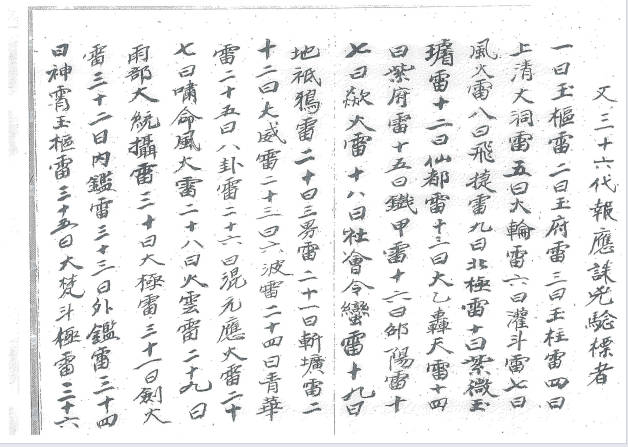 又三十六代報應誅兇驗標者
一曰玉樞雷二曰玉府雷三曰玉柱雷四曰
上清大洞雷五曰火輪雷六曰灌斗雷七曰
風火雷八曰飛捷雷九曰北極雷十曰紫微玉
璿雷十二曰仙都雷十三曰太乙轟天雷十四
曰紫府雷十五曰鐵甲雷十六曰邵陽雷十
七曰歘火雷十八曰社會令蠻雷十九曰
地祇鴉雷二十曰三男雷二十一曰斬壙雷二
十二曰大威雷二十三曰六波雷二十四曰青華
雷二十五曰八卦雷二十六曰混元應火雷二十
七曰嘯命風火雷二十八曰火雲雷二十九曰
雨部大統攝雷三十曰太極雷三十一曰劍火
雷三十二曰內鑑雷三十三曰外鑑雷三十四
曰神霄玉樞雷三十五曰大梵斗極雷三十六